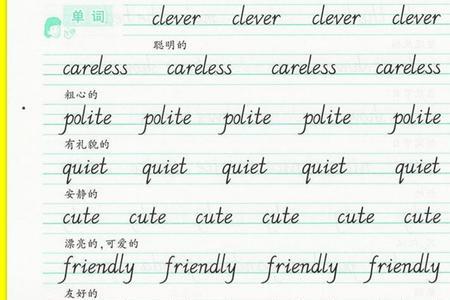 单词 clever clever clever clever
聪明的
careless careless careless careless
粗心的
polite polite polite polite polite
有礼貌的
quiet quiet quiet quiet quiet
安静的
cute cute cute cute cute cute
漂亮的,可爱的
friendly friendly friendly friendly
友好的